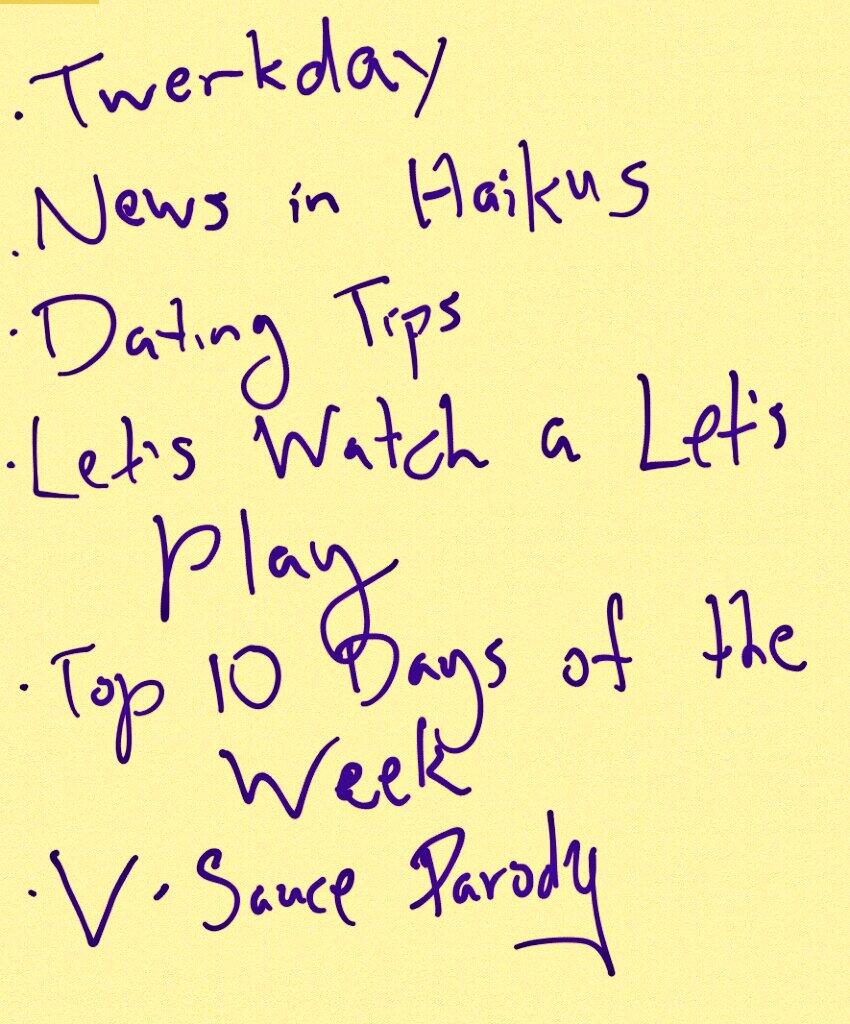 · Twerkday
· News in Haikus
· Dating Tips
· Let's Watch a Let's
Play
· Top 10 Days of the
Week
· V·Sauce Parody